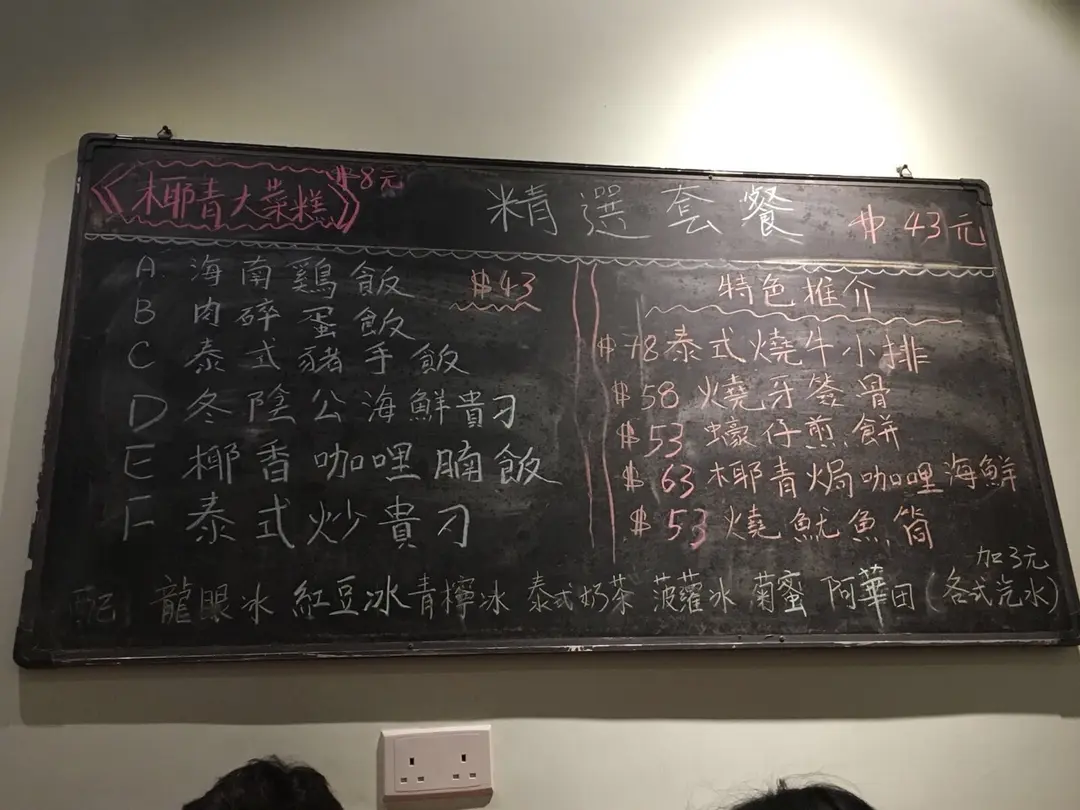 《椰青大菜糕》$8元
精選套餐 $43元
A 海南鷄飯 $43
B 肉碎蛋飯
C 泰式豬手飯
D 冬陰公海鮮貴刁
E 椰香咖哩腩飯
F 泰式炒貴刁
特色推介
$78 泰式燒牛小排
$58 燒牙簽骨
$53 蠔仔煎餅
$63 椰青焗咖哩海鮮
$53 燒魷魚筒
加3元
配 龍眼冰 紅豆冰 青檸冰 泰式奶茶 菠蘿冰 菊蜜 阿華田 (各式汽水)